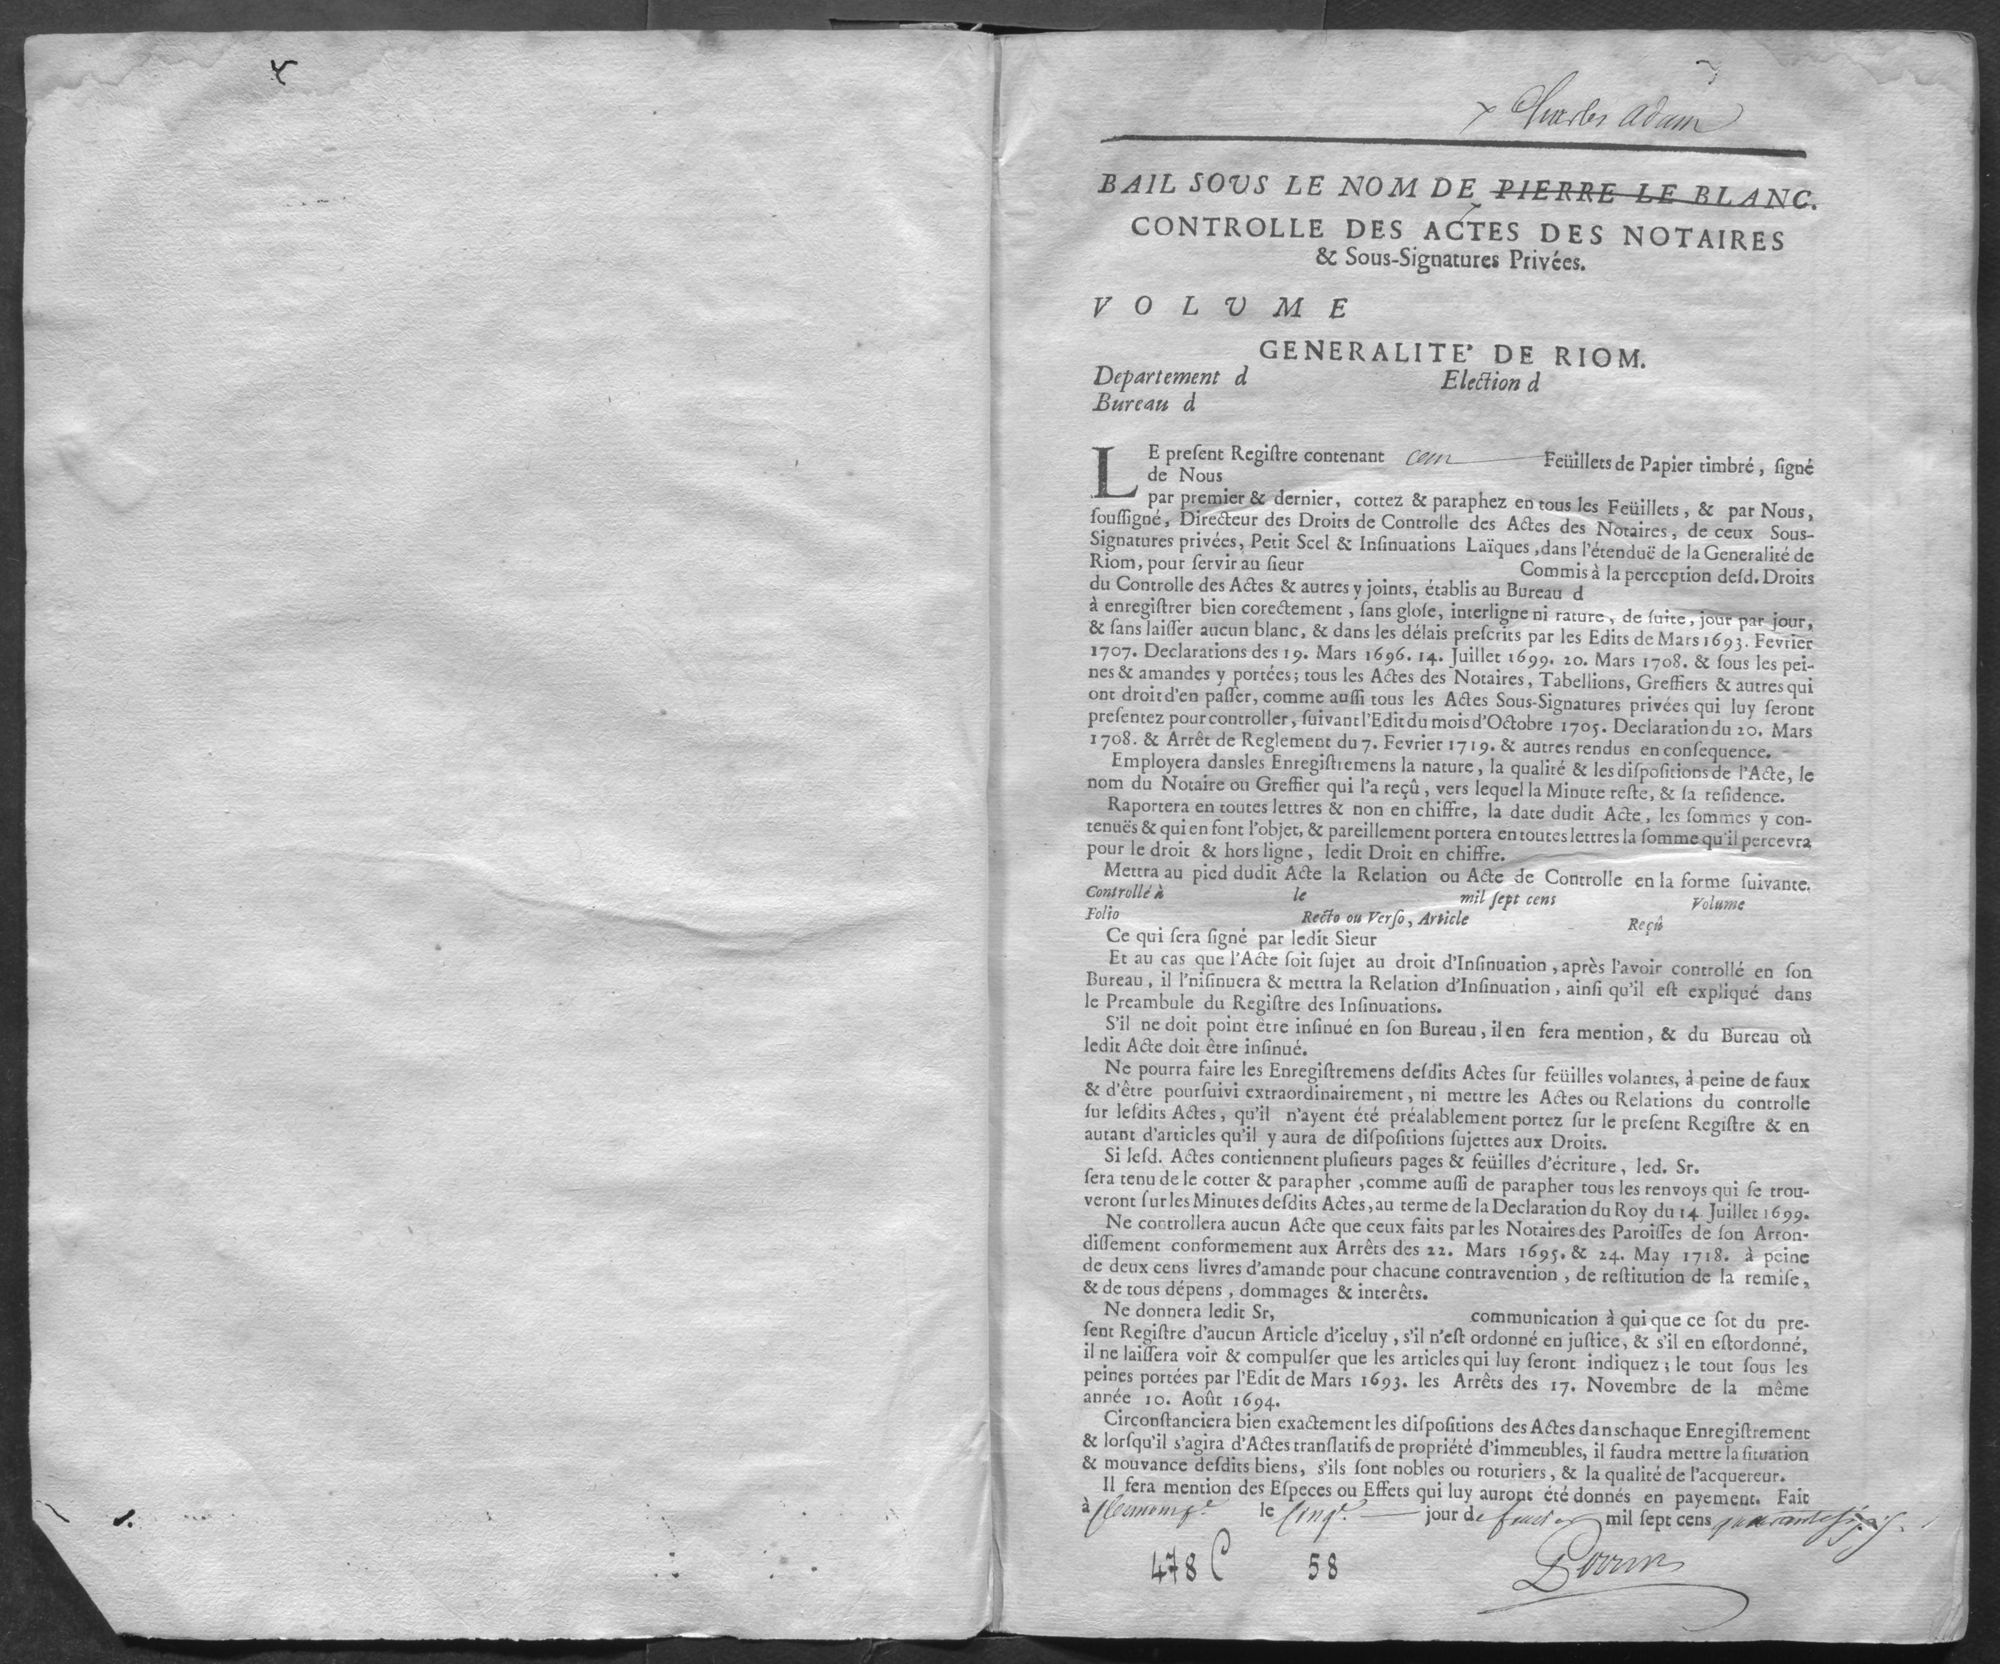 x Charles Adam
BAIL SOUS LE NOM DE PIERRE LE BLANC.
CONTROLLE DES ACTES DES NOTAIRES
& Sous-Signatures Privées.
VOLUME
GENERALITE' DE RIOM.
Departement d Election d
Bureau d
LE preſent Regiſtre contenant cent Feüillets de Papier timbré, ſigné
de Nous
par premier & dernier, cottez & paraphez en tous les Feüillets, & par Nous,
ſouſſigné, Directeur des Droits de Controlle des Actes des Notaires, de ceux Sous-
Signatures privées, Petit Scel & Inſinuations Laïques, dans l'étenduë de la Generalité de
Riom, pour ſervir au ſieur Commis à la perception deſd. Droits
du Controlle des Actes & autres y joints, établis au Bureau d
à enregiſtrer bien corectement, ſans gloſe, interligne ni rature, de ſuite, jour par jour,
& ſans laiſſer aucun blanc, & dans les délais preſcrits par les Edits de Mars 1693. Fevrier
1707. Declarations des 19. Mars 1696. 14. Juillet 1699. 20. Mars 1708. & ſous les pei-
nes & amandes y portées; tous les Actes des Notaires, Tabellions, Greffiers & autres qui
ont droit d'en paſſer, comme auſſi tous les Actes Sous-Signatures privées qui luy ſeront
preſentez pour controller, ſuivant l'Edit du mois d'Octobre 1705. Declaration du 20. Mars
1708. & Arrêt de Reglement du 7. Fevrier 1719. & autres rendus en conſequence.
Employera dansles Enregiſtremens la nature, la qualité & les diſpoſitions de l'Acte, le
nom du Notaire ou Greffier qui l'a reçû, vers lequel la Minute reſte, & ſa reſidence.
Raportera en toutes lettres & non en chiffre, la date dudit Acte, les ſommes y con-
tenuës & qui en font l'objet, & pareillement portera en toutes lettres la ſomme qu'il percevra
pour le droit & hors ligne, ledit Droit en chiffre.
Mettra au pied dudit Acte la Relation ou Acte de Controlle en la forme ſuivante.
Controllé à le mil ſept cens Volume
Folio Recto ou Verſo, Article Reçû
Ce qui ſera ſigné par ledit Sieur
Et au cas que l'Acte ſoit ſujet au droit d'Inſinuation, après l'avoir controllé en ſon
Bureau, il l'niſinuera & mettra la Relation d'Inſinuation, ainſi qu'il eſt expliqué dans
le Preambule du Regiſtre des Inſinuations.
S'il ne doit point être inſinué en ſon Bureau, il en fera mention, & du Bureau où
ledit Acte doit être inſinué.
Ne pourra faire les Enregiſtremens deſdits Actes ſur feüilles volantes, à peine de faux
& d'être pourſuivi extraordinairement, ni mettre les Actes ou Relations du controlle
ſur leſdits Actes, qu'il n'ayent été préalablement portez ſur le preſent Regiſtre & en
autant d'articles qu'il y aura de diſpoſitions ſujettes aux Droits.
Si leſd. Actes contiennent pluſieurs pages & feüilles d'écriture, led. Sr.
ſera tenu de le cotter & parapher, comme auſſi de parapher tous les renvoys qui ſe trou-
veront ſur les Minutes deſdits Actes, au terme de la Declaration du Roy du 14. Juillet 1699.
Ne controllera aucun Acte que ceux faits par les Notaires des Paroiſſes de ſon Arron-
diſſement conformement aux Arrêts des 22. Mars 1695. & 24. May 1718. à peine
de deux cens livres d'amande pour chacune contravention, de reſtitution de la remiſe,
& de tous dépens, dommages & interêts.
Ne donnera ledit Sr, communication à qui que ce ſot du pre-
ſent Regiſtre d'aucun Article d'iceluy, s'il n'eſt ordonné en juſtice, & s'il en eſtordonné,
il ne laiſſera voir & compulſer que les articles qui luy ſeront indiquez; le tout ſous les
peines portées par l'Edit de Mars 1693. les Arrêts des 17. Novembre de la même
année 10. Août 1694.
Circonſtanciera bien exactement les diſpoſitions des Actes danschaque Enregiſtrement
& lorſqu'il s'agira d'Actes tranſlatifs de propriété d'immeubles, il faudra mettre la ſituation
& mouvance deſdits biens, s'ils ſont nobles ou roturiers, & la qualité de l'acquereur.
Il fera mention des Eſpeces ou Effets qui luy auront été donnés en payement. Fait
à le Cinq.e jour de mil ſept cens
478 C 58